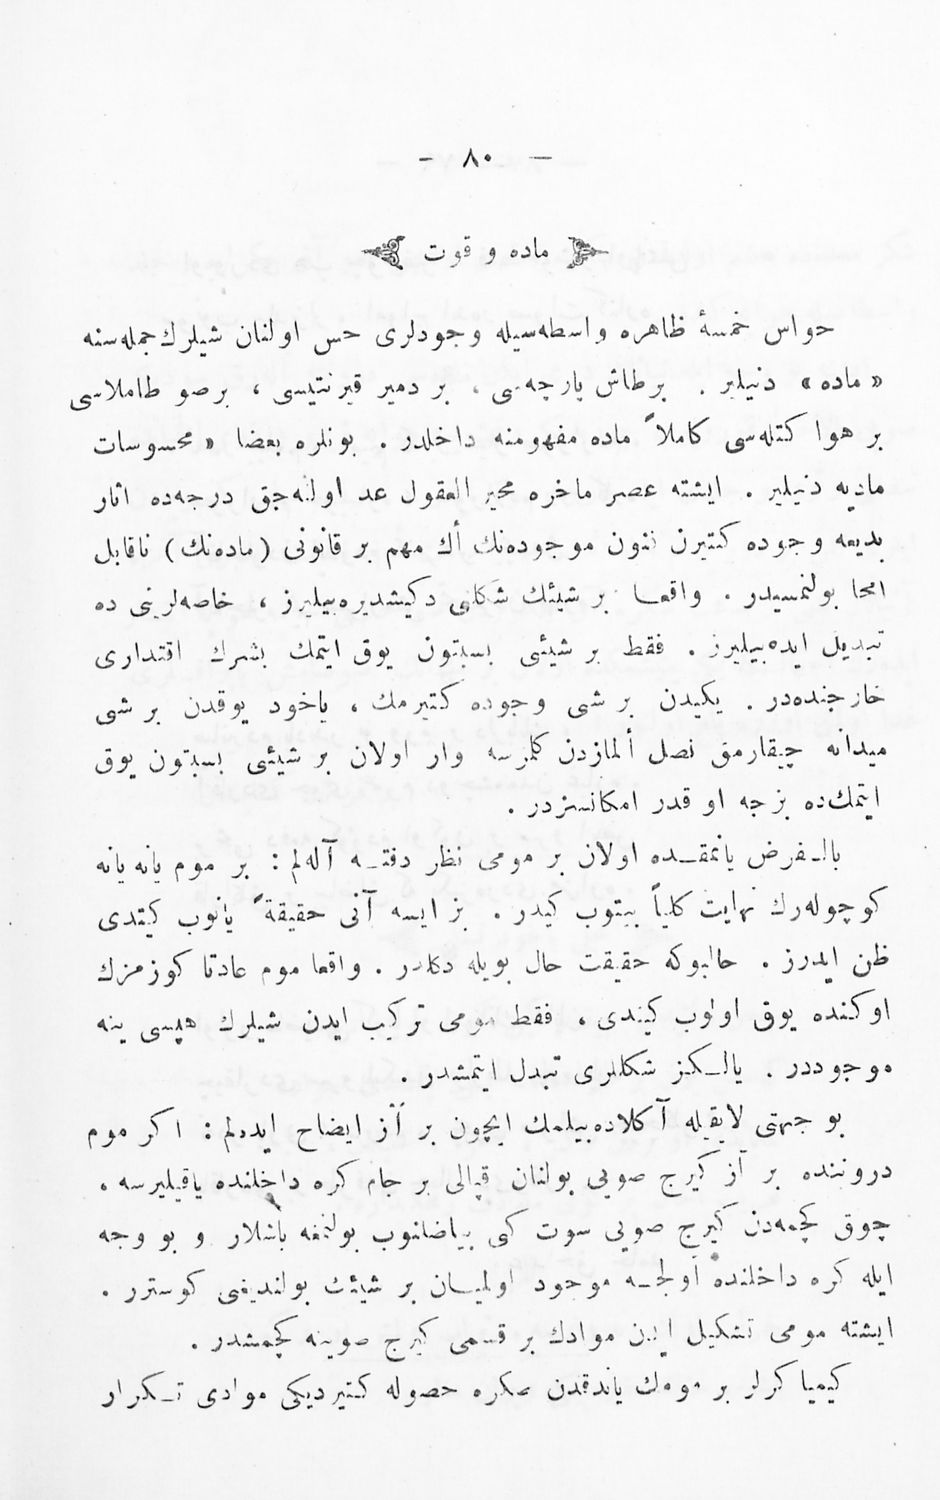 — ٨٠ —
ماده و قوت
حواس خمسهٔ ظاهره واسطه‌سیله وجودلری حس اولنان شیلرك جمله‌سنه
« ماده » دنیلیر . بر طاش پارچه‌سی ، بر دمیر قیرنتیسی ، بر صو طاملاسی
بر هوا كتله‌سی كاملاً ماده مفهومنه داخلدر . بونلره بعضا « محسوسات
مادیه دنیلیر . ایشته عصر ماخره محیر العقول عد اولنه‌جق درجه‌ده اثار
بدیعه وجوده كتیرن فنون موجوده‌نك أك مهم بر قانونی ( ماده‌نك ) ناقابل
امحا بولنمسیدر . واقعا بر شیئك شكلنی دكیشدیره‌بیلیرز ، خاصه‌لرینی ده
تبدیل ایده‌بیلیرز . فقط بر شیئی بسبتون یوق ایتمك بشرك اقتداری
خارجنده‌در . یكیدن بر شی وجوده كتیرمك ، یاخود یوقدن بر شی
میدانه چیقارمق نصل ألمازدن كلمزسه وار اولان بر شیئی بسبتون یوق
ایتمك‌ده بزجه او قدر امكانسزدر .
بالفرض یانمقده اولان بر مومی نظر دقته آله‌لم : بر موم یانه یانه
كوچوله‌رك نهایت كلیاً بیتوب كیدر . بز ایسه آنی حقیقةً یانوب كیتدی
ظن ایدرز . حالبوكه حقیقت حال بویله دكلدر . واقعا موم عادتا كوزمزك
اوكنده یوق اولوب كیتدی ، فقط مومی تركیب ایدن شیلرك هپسی ینه
موجوددر . یالكز شكللری تبدل ایتمشدر .
بو جهتی لایقیله آكلاده‌بیلمك ایچون بر آز ایضاح ایده‌لم : اكر موم
دروننده بر آز كیرج صویی بولنان قپالی بر جام كره داخلنده یاقیلیرسه ،
چوق كچمه‌دن كیرج صویی سوت كبی بیاضلنوب بولنمغه باشلار و بو وجه
ایله كره داخلنده أولجه موجود اولمیان بر شیئك بولندیغی كوسترر .
ایشته مومی تشكیل ایدن موادك بر قسمی كیرج صوینه كچمشدر .
كیمیا كرلر بر مومك یاندقدن صكره حصوله كتیردیكی موادی تكرار